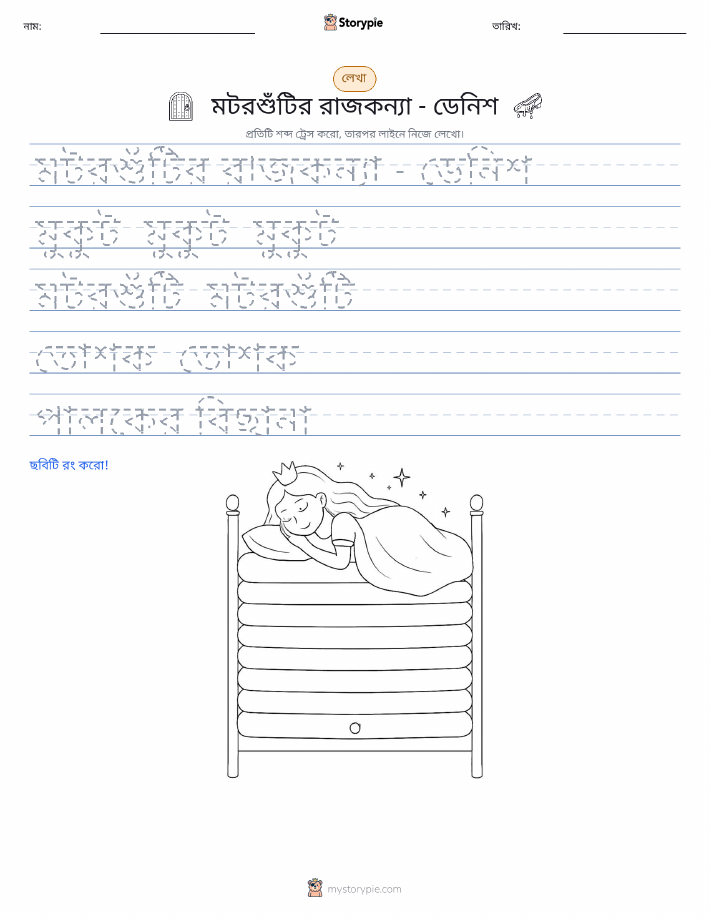 নাম:
Storypie
তারিখ:
লেখা
মটরশুঁটির রাজকন্যা - ডেনিশ
প্রতিটি শব্দ ট্রেস করো, তারপর লাইনে নিজে লেখো।
মটরশুঁটির রাজকন্যা - ডেনিশ
মুকুট মুকুট মুকুট
মটরশুঁটি মটরশুঁটি
তোশক তোশক
পালকের বিছানা
ছবিটি রং করো!
mystorypie.com